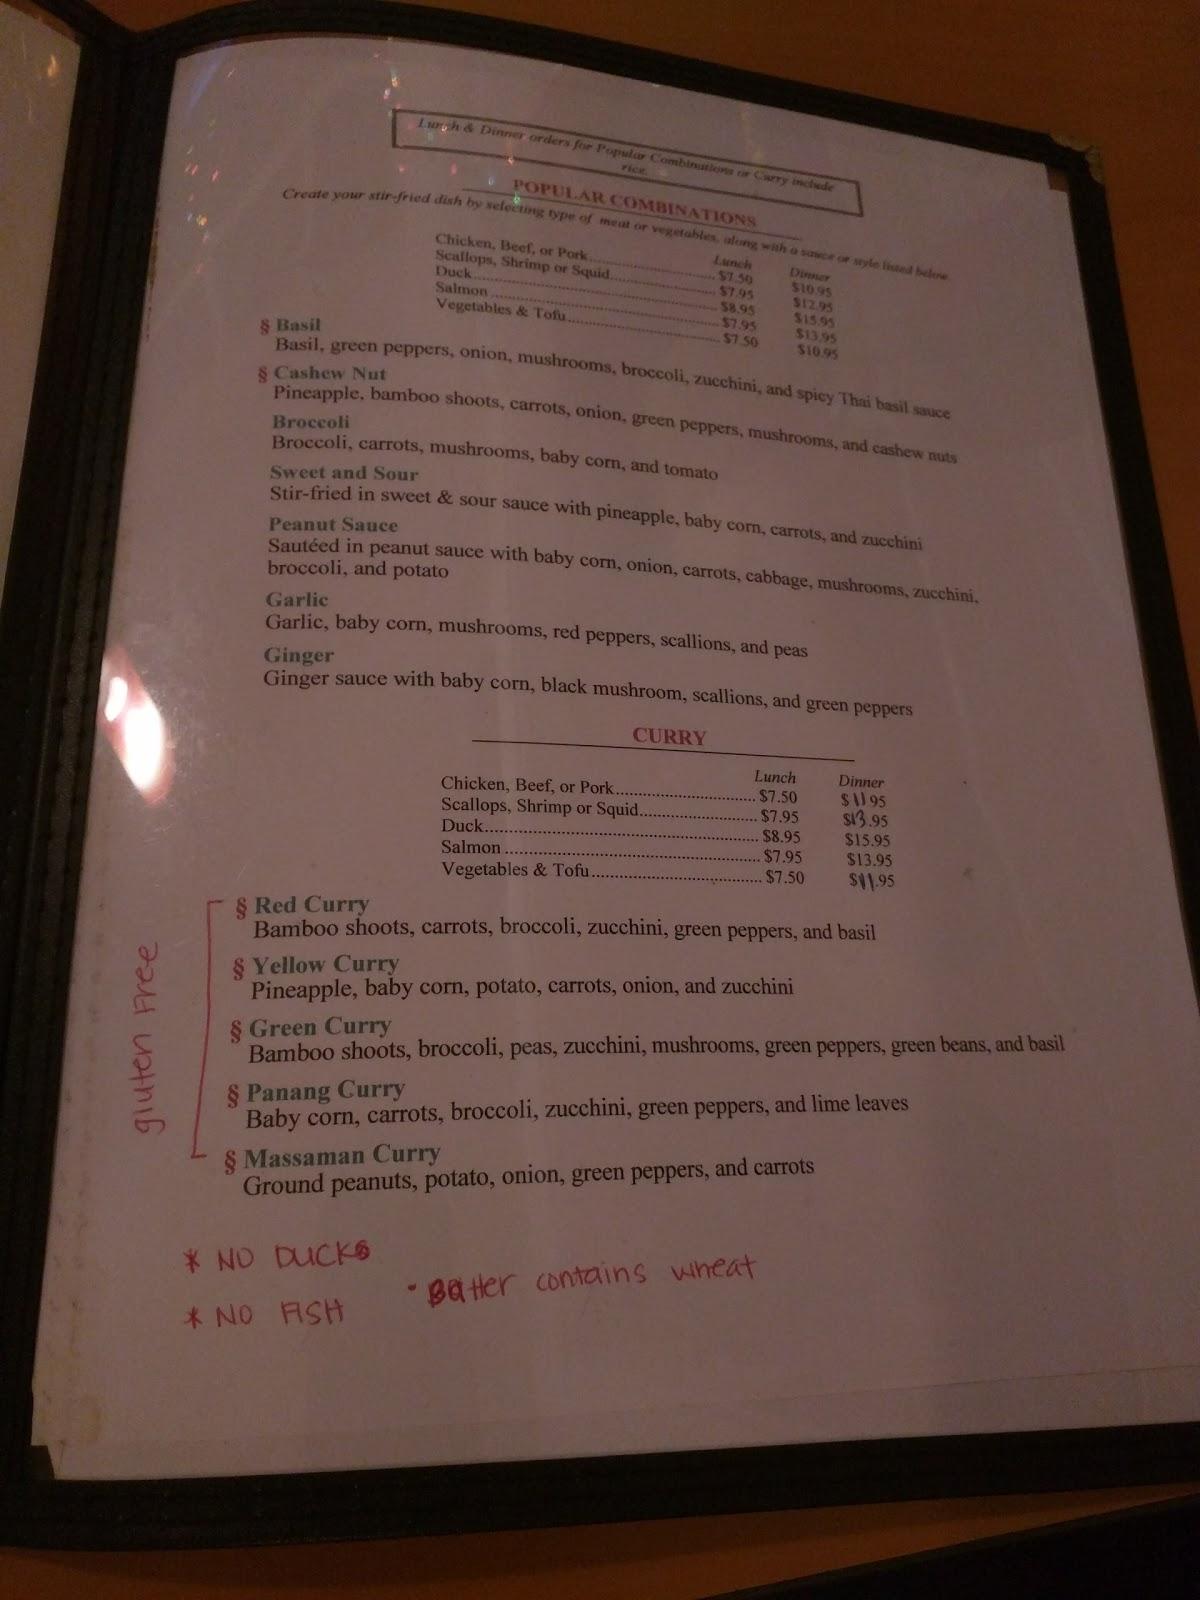 Lunch & Dinner orders for Popular Combinations or Curry include
rice.
POPULAR COMBINATIONS
Create your stir-fried dish by selecting type of meat or vegetables, along with a sauce or style listed below
Lunch Dinner
Chicken, Beef, or Pork........................ $7.50 $10.95
Scallops, Shrimp or Squid.................... $7.95 $12.95
Duck................................................ $8.95 $15.95
Salmon ............................................ $7.95 $13.95
Vegetables & Tofu.............................. $7.50 $10.95
§ Basil
Basil, green peppers, onion, mushrooms, broccoli, zucchini, and spicy Thai basil sauce
§ Cashew Nut
Pineapple, bamboo shoots, carrots, onion, green peppers, mushrooms, and cashew nuts
Broccoli
Broccoli, carrots, mushrooms, baby corn, and tomato
Sweet and Sour
Stir-fried in sweet & sour sauce with pineapple, baby corn, carrots, and zucchini
Peanut Sauce
Sautéed in peanut sauce with baby corn, onion, carrots, cabbage, mushrooms, zucchini,
broccoli, and potato
Garlic
Garlic, baby corn, mushrooms, red peppers, scallions, and peas
Ginger
Ginger sauce with baby corn, black mushroom, scallions, and green peppers
CURRY
Lunch Dinner
Chicken, Beef, or Pork................................ $7.50 $11.95
Scallops, Shrimp or Squid........................... $7.95 $13.95
Duck........................................................ $8.95 $15.95
Salmon .................................................... $7.95 $13.95
Vegetables & Tofu..................................... $7.50 $11.95
gluten Free
§ Red Curry
Bamboo shoots, carrots, broccoli, zucchini, green peppers, and basil
§ Yellow Curry
Pineapple, baby corn, potato, carrots, onion, and zucchini
§ Green Curry
Bamboo shoots, broccoli, peas, zucchini, mushrooms, green peppers, green beans, and basil
§ Panang Curry
Baby corn, carrots, broccoli, zucchini, green peppers, and lime leaves
§ Massaman Curry
Ground peanuts, potato, onion, green peppers, and carrots
* NO DUCKS
* NO FISH
· BAtter contains wheat